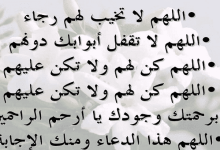 •اللهم لا تخيب لهم رجاء
•اللهم لا تقفل أبوابك دونهم
•اللهم كن لهم ولا تكن عليهم
•اللهم كن لهم ولا تكن عليهم
برحمتك وجودك يا أرحم الراحمين
•اللهم هذا الدعاء ومنك الإجابة